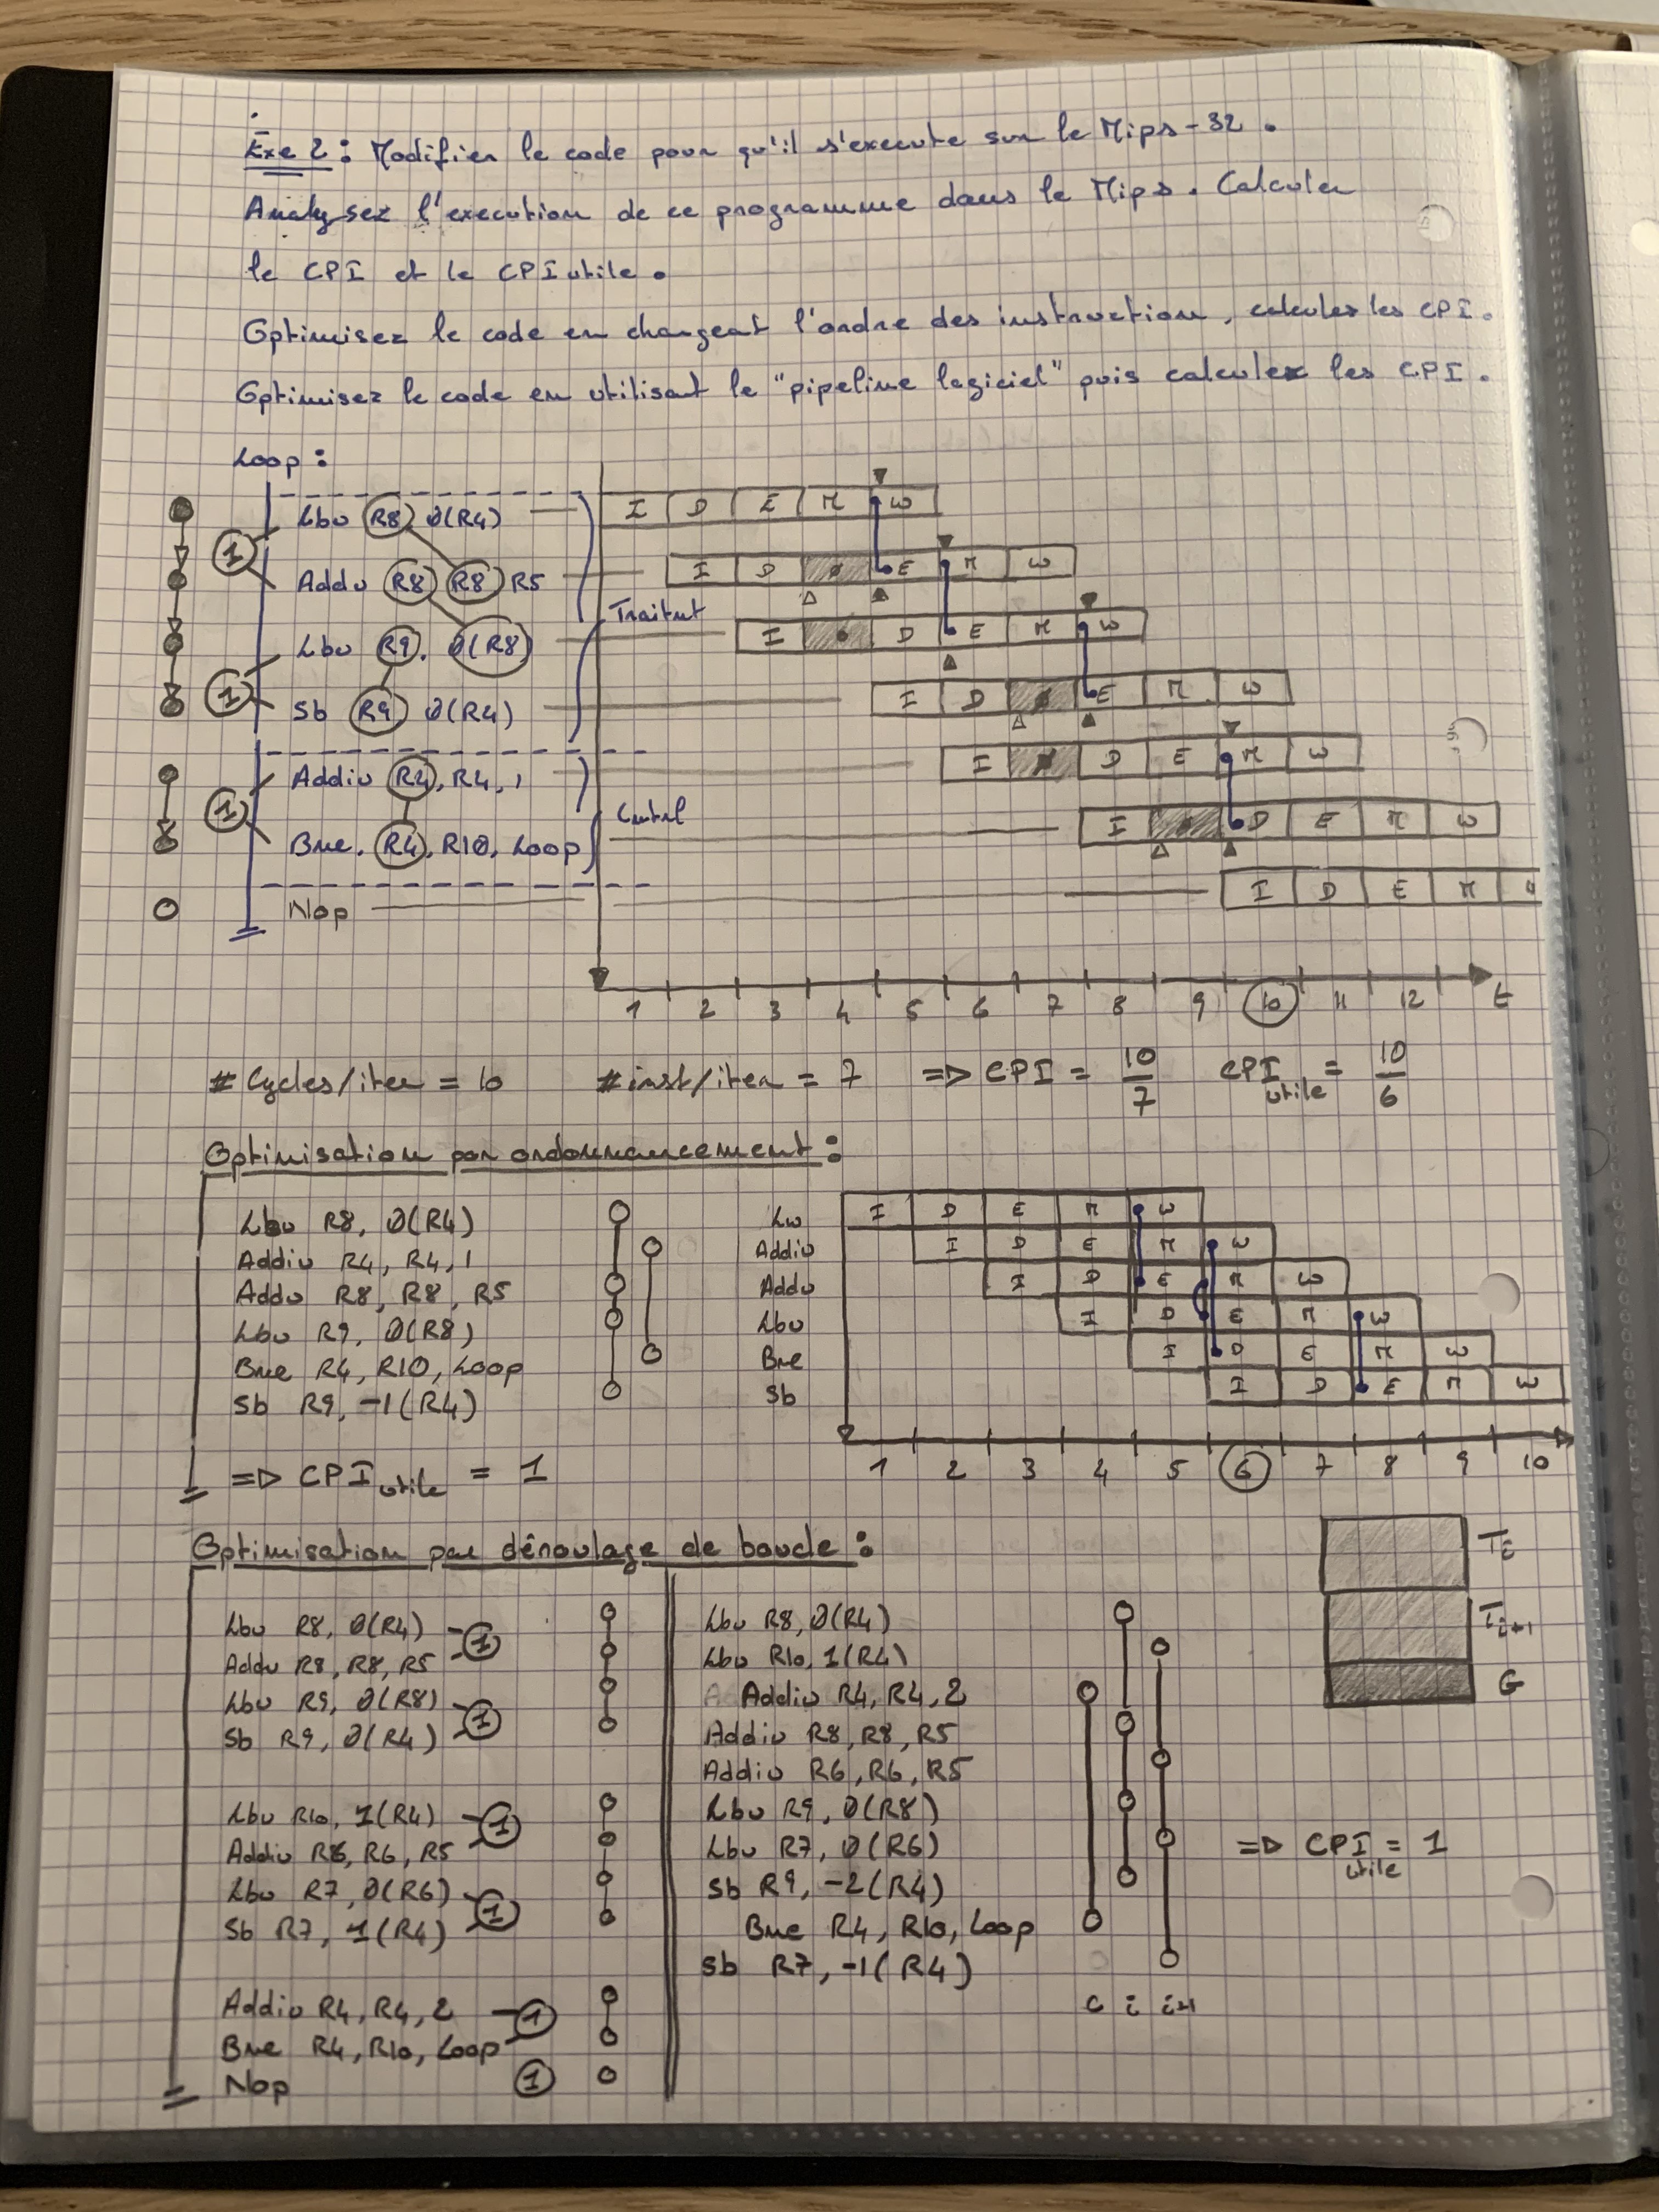 Exe 2 : Modifier le code pour qu'il s'execute sur le Mips-32.
Analysez l'execution de ce programme dans le Mips. Calculer
le CPI et le CPI utile.
Optimisez le code en changeat l'ordre des instruction, calculer les CPI.
Optimisez le code en utilisant le "pipeline logiciel" puis calculez les CPI.
Loop :
Lbu R8 0(R4) I D E M W
1
Addu R8 R8 R5 I D E M W
Traitmt
Lbu R9, 0(R8) I D E M W
1
Sb R9 0(R4) I D E M W
Addiu R4, R4, 1 I D E M W
1 Control
Bne, R4, R10, Loop I D E M W
Nop I D E M
1 2 3 4 5 6 7 8 9 10 11 12 t
# Cycles/iter = 10 # inst/iter = 7 => CPI = 10/7 CPI utile = 10/6
Optimisation par ordonnancement :
Lbu R8, 0(R4) Lw I D E M W
Addiu R4, R4, 1 Addiu I D E M W
Addu R8, R8, R5 Addu I D E M W
Lbu R9, 0(R8) Lbu I D E M W
Bne R4, R10, Loop Bne I D E M W
Sb R9, -1(R4) Sb I D E M W
1 2 3 4 5 6 7 8 9 10
=> CPI utile = 1
Optimisation par déroulage de boucle :
Ti
Ti+1
G
Lbu R8, 0(R4) 1
Addu R8, R8, R5
Lbu R9, 0(R8) 1
Sb R9, 0(R4)
Lbu R10, 1(R4) 1
Addiu R6, R6, R5
Lbu R7, 0(R6) 1
Sb R7, 1(R4)
Addiu R4, R4, 2 1
Bne R4, R10, Loop
Nop 1
Lbu R8, 0(R4)
Lbu R10, 1(R4)
Addiu R4, R4, 2
Addiu R8, R8, R5
Addiu R6, R6, R5
Lbu R9, 0(R8)
Lbu R7, 0(R6)
Sb R9, -2(R4)
Bne R4, R10, Loop
Sb R7, -1(R4)
c i i+1
=> CPI utile = 1